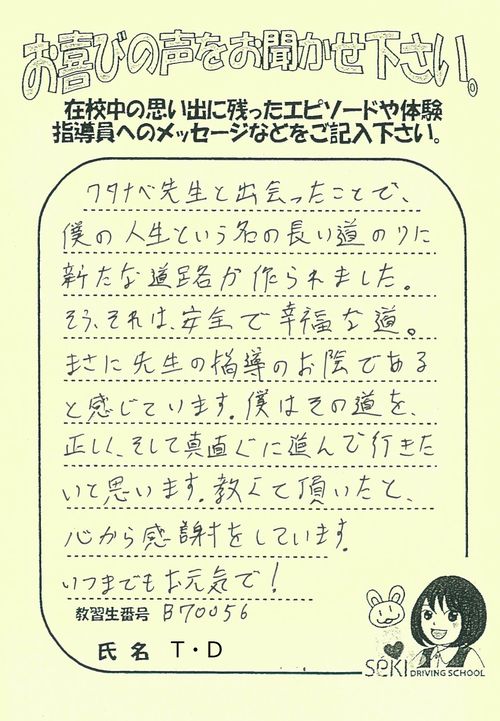 お喜びの声をお聞かせ下さい。
在校中の思い出に残ったエピソードや体験
指導員へのメッセージなどをご記入下さい。
ワタナベ先生と出会ったことで、
僕の人生という名の長い道のりに
新たな道路が作られました。
そう、それは、安全で幸福な道。
まさに先生の指導のお陰である
と感じています。僕はその道を、
正しく、そして真直ぐに進んで行きた
いと思います。教えて頂いたと、
心から感謝をしています。
いつまでもお元気で!
教習生番号 B70056
氏名 T・D
SEKI DRIVING SCHOOL